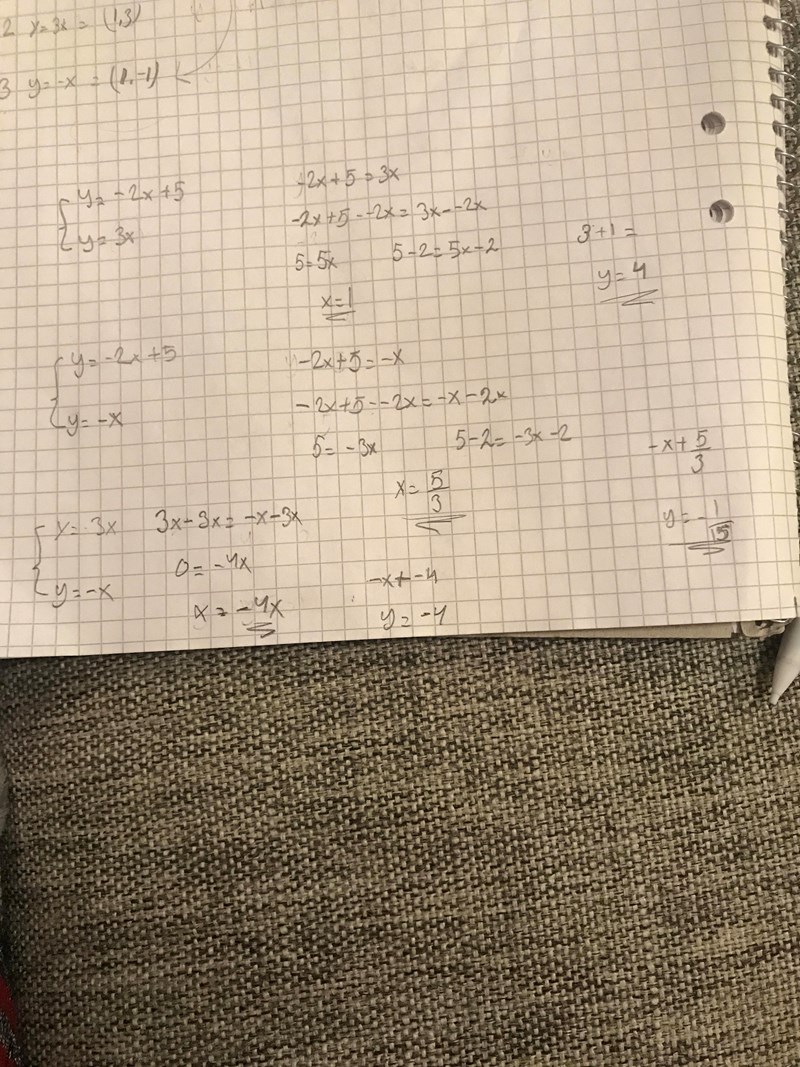 2 y=3x = (1,3)
3 y=-x = (1,-1)
y= -2x+5
y=3x
-2x+5=3x
-2x+5--2x=3x--2x
5=5x 5-2=5x-2
x=1
3+1=
y=4
y=-2x+5
y=-x
-2x+5=-x
-2x+5--2x=-x-2x
5= -3x 5-2=-3x-2
x=5/3
-x+5/3
y=-1/15
y=3x
y=-x
3x-3x=-x-3x
0=-4x
x=-4x
-x+-4
y=-4